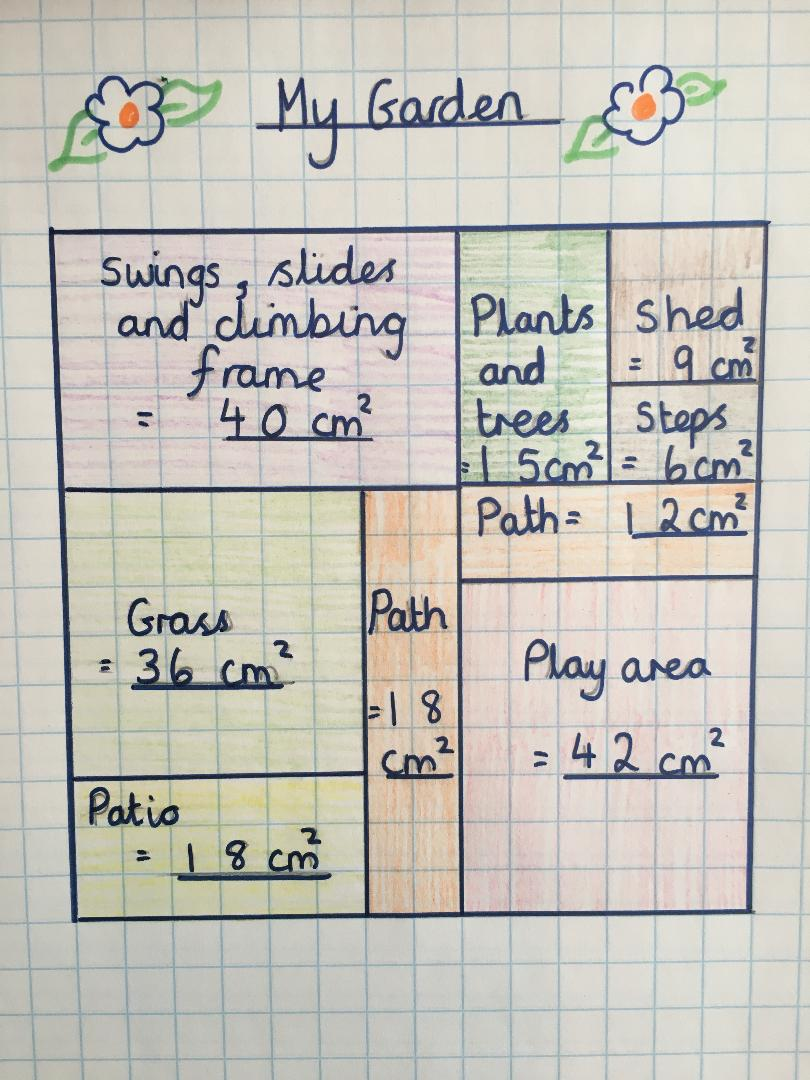 My Garden
Swings, slides
and climbing
frame
= 40 cm²
Plants
and
trees
=15cm²
Shed
= 9 cm²
Steps
= 6cm²
Path= 12cm²
Grass
= 36 cm²
Path
=18
cm²
Play area
= 42 cm²
Patio
= 18 cm²